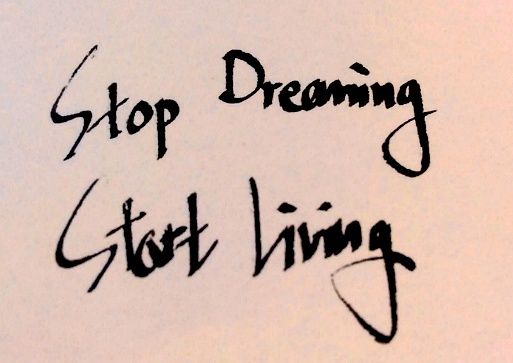 Stop Dreaming
Start Living